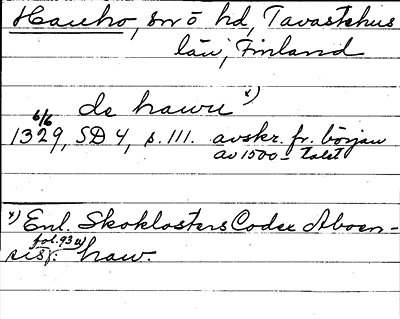 Hauho, sn ö hd, Tavastehus
län, Finland
de hawu x)
6/6
1329, SD 4, s. 111. avskr. fr. början
av 1500-talet
x) Enl. Skoklosters Codex Aboen-
fol. 93 v)
sis: haw.